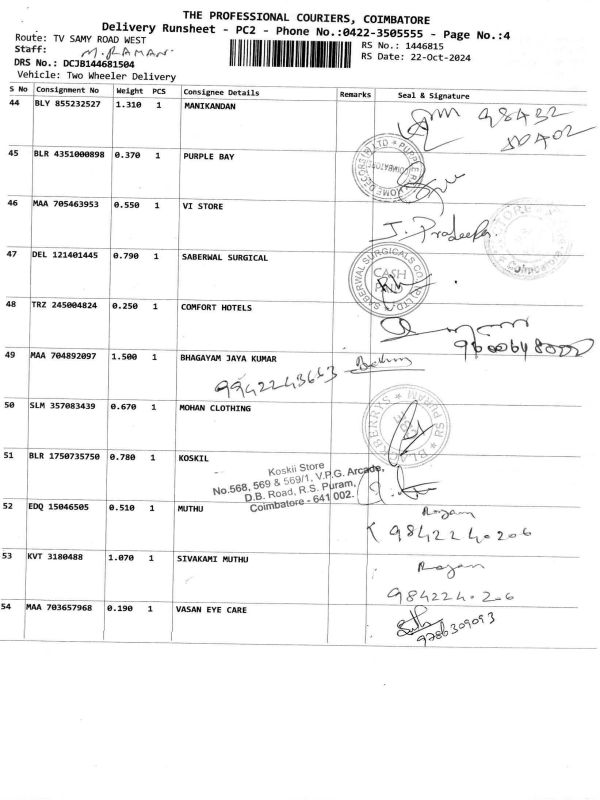 THE PROFESSIONAL COURIERS, COIMBATORE
Delivery Runsheet - PC2 - Phone No.:0422-3505555 - Page No.:4
Route: TV SAMY ROAD WEST
RS No.: 1446815
Staff: M. RAMAN
RS Date: 22-Oct-2024
DRS No.: DCJB144681504
Vehicle: Two Wheeler Delivery
S No Consignment No Weight PCS Consignee Details Remarks Seal & Signature
44 BLY 855232527 1.310 1 MANIKANDAN
98432
50402
45 BLR 4351000898 0.370 1 PURPLE BAY
46 MAA 705463953 0.550 1 VI STORE
J. Pradeepa
Coimbatore
47 DEL 121401445 0.790 1 SABERWAL SURGICAL
SABERWAL SURGICALS CO.
CASH
48 TRZ 245004824 0.250 1 COMFORT HOTELS
9600648000
49 MAA 704892097 1.500 1 BHAGAYAM JAYA KUMAR
9942243653
50 SLM 357083439 0.670 1 MOHAN CLOTHING
BLACKBERRYS ★ RS PURAM ★
51 BLR 1750735750 0.780 1 KOSKIL
Koskii Store
No.568, 569 & 569/1, V.P.G. Arcade,
D.B. Road, R.S. Puram,
Coimbatore - 641 002.
52 EDQ 15046505 0.510 1 MUTHU
Rajan
9842240206
53 KVT 3180488 1.070 1 SIVAKAMI MUTHU
Rajan
9842240206
54 MAA 703657968 0.190 1 VASAN EYE CARE
9786309093